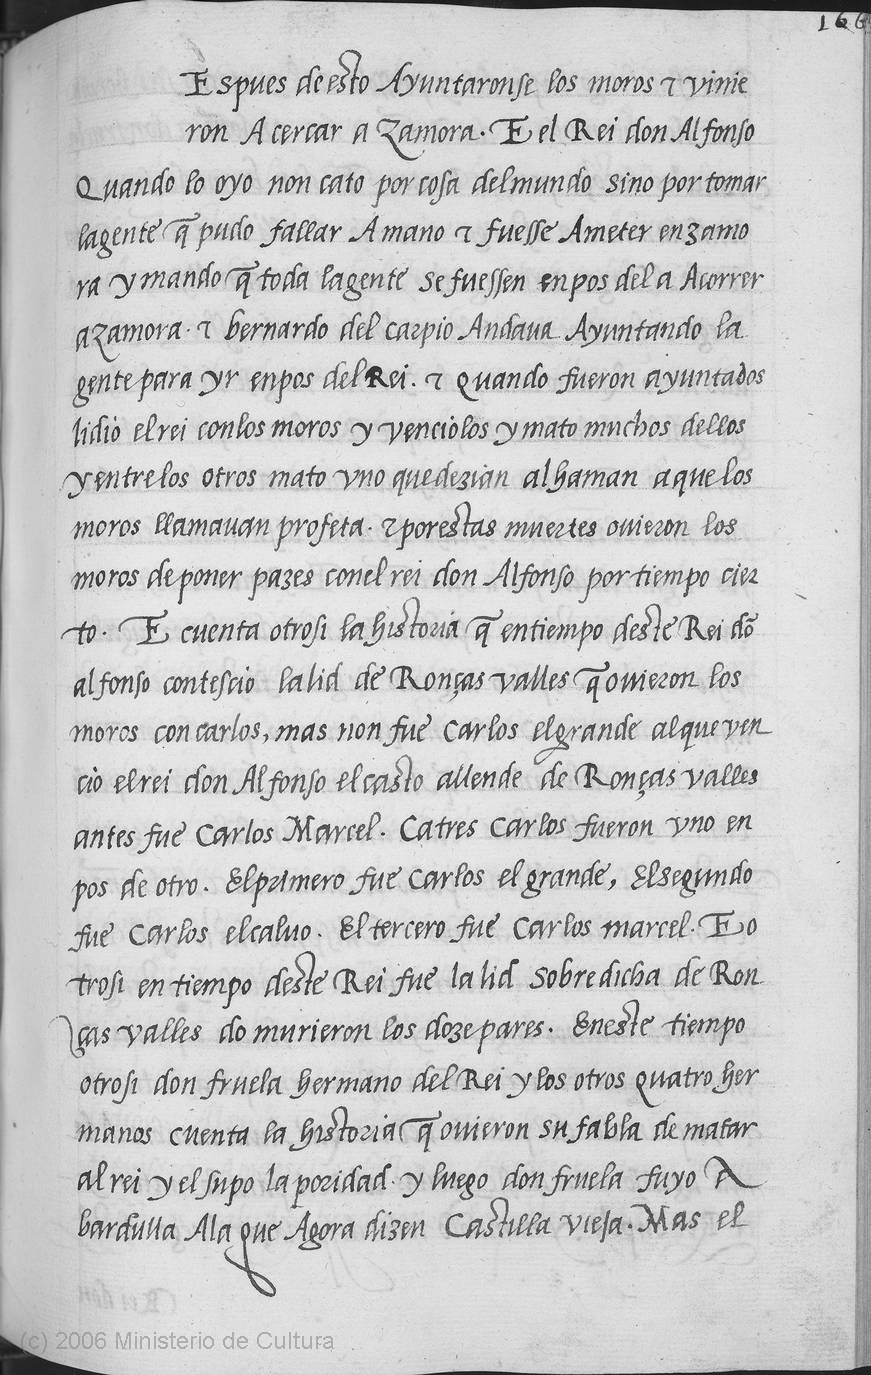 166
Espues de esto Ayuntaronse los moros τ vinie
ron A cercar a Zamora. E el Rei don Alfonso
Quando lo oyo non cato por cosa del mundo sino por tomar
la gente q̃ pudo fallar A mano τ fuesse Ameter en zamo
ra y mando q̃ toda la gente se fuessen en pos del a Acorrer
a Zamora. τ bernardo del carpio Andaua Ayuntando la
gente para yr en pos del Rei. τ Quando fueron ayuntados
lidiò el rei con los moros y venciòlos y mato muchos dellos
y entre los otros mato vno que dezian alhaman a que los
moros llamauan profeta. τ por estas muertes ouieron los
moros de poner pazes con el rei don Alfonso por tiempo cier
to. E cuenta otrosi la historia q̃ en tiempo deste Rei dõ
alfonso contesciò la lid de Ronças valles q̃ ouieron los
moros con carlos, mas non fue Carlos el grande al que ven
ciò el rei don Alfonso el casto allende de Ronças valles
antes fue Carlos Marcel. Ca tres Carlos fueron vno en
pos de otro. El primero fue Carlos el grande, El segundo
fue Carlos el caluo. El tercero fue Carlos marcel. E o
trosi en tiempo deste Rei fue la lid sobre dicha de Ron
ças valles do murieron los doze pares. En este tiempo
otrosi don fruela hermano del Rei y los otros quatro her
manos cuenta la historia q̃ ouieron su fabla de matar
al rei y el supo la poridad. y luego don fruela fuyo A
bardulla A la que Agora dizen Castilla vieja. Mas el
(c) 2006 Ministerio de Cultura